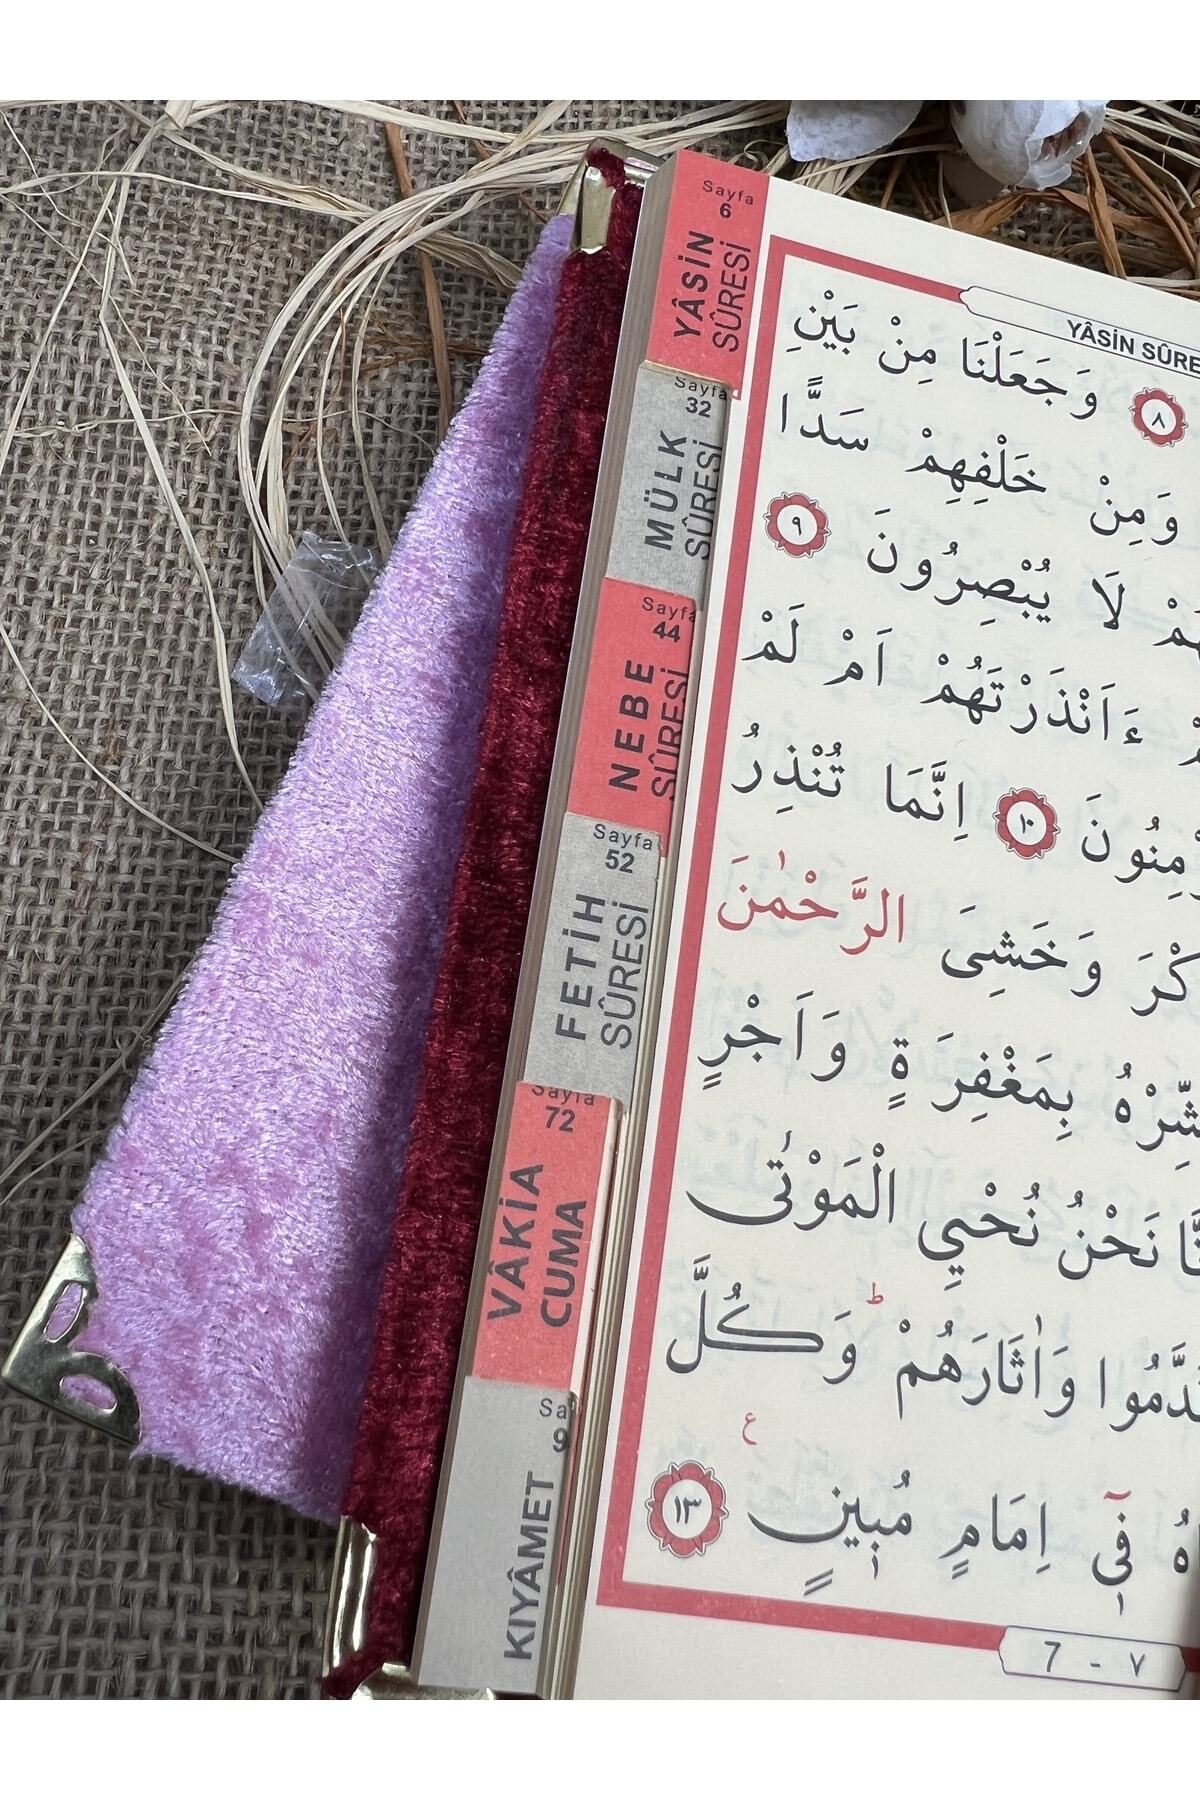 Sayfa
6
YÂSİN
SÛRESİ
Sayfa
32
MÜLK
SÛRESİ
Sayfa
44
NEBE
SÛRESİ
Sayfa
52
FETİH
SÛRESİ
Sayfa
72
VÂKİA
CUMA
KIYÂMET
YÂSİN SÛRE
٨ وَجَعَلْنَا مِنْ بَيْنِ
وَمِنْ خَلْفِهِمْ سَدًّا
لَا يُبْصِرُونَ ٩
ءَاَنْذَرْتَهُمْ اَمْ لَمْ
١٠ اِنَّمَا تُنْذِرُ
وَخَشِىَ الرَّحْمٰنَ
بِمَغْفِرَةٍ وَاَجْرٍ
نَحْنُ نُحْيِي الْمَوْتٰى
وَاٰثَارَهُمْ ط وَكُلَّ
فٓى اِمَامٍ مُبٖينٍ ع ١٣
7 - ٧